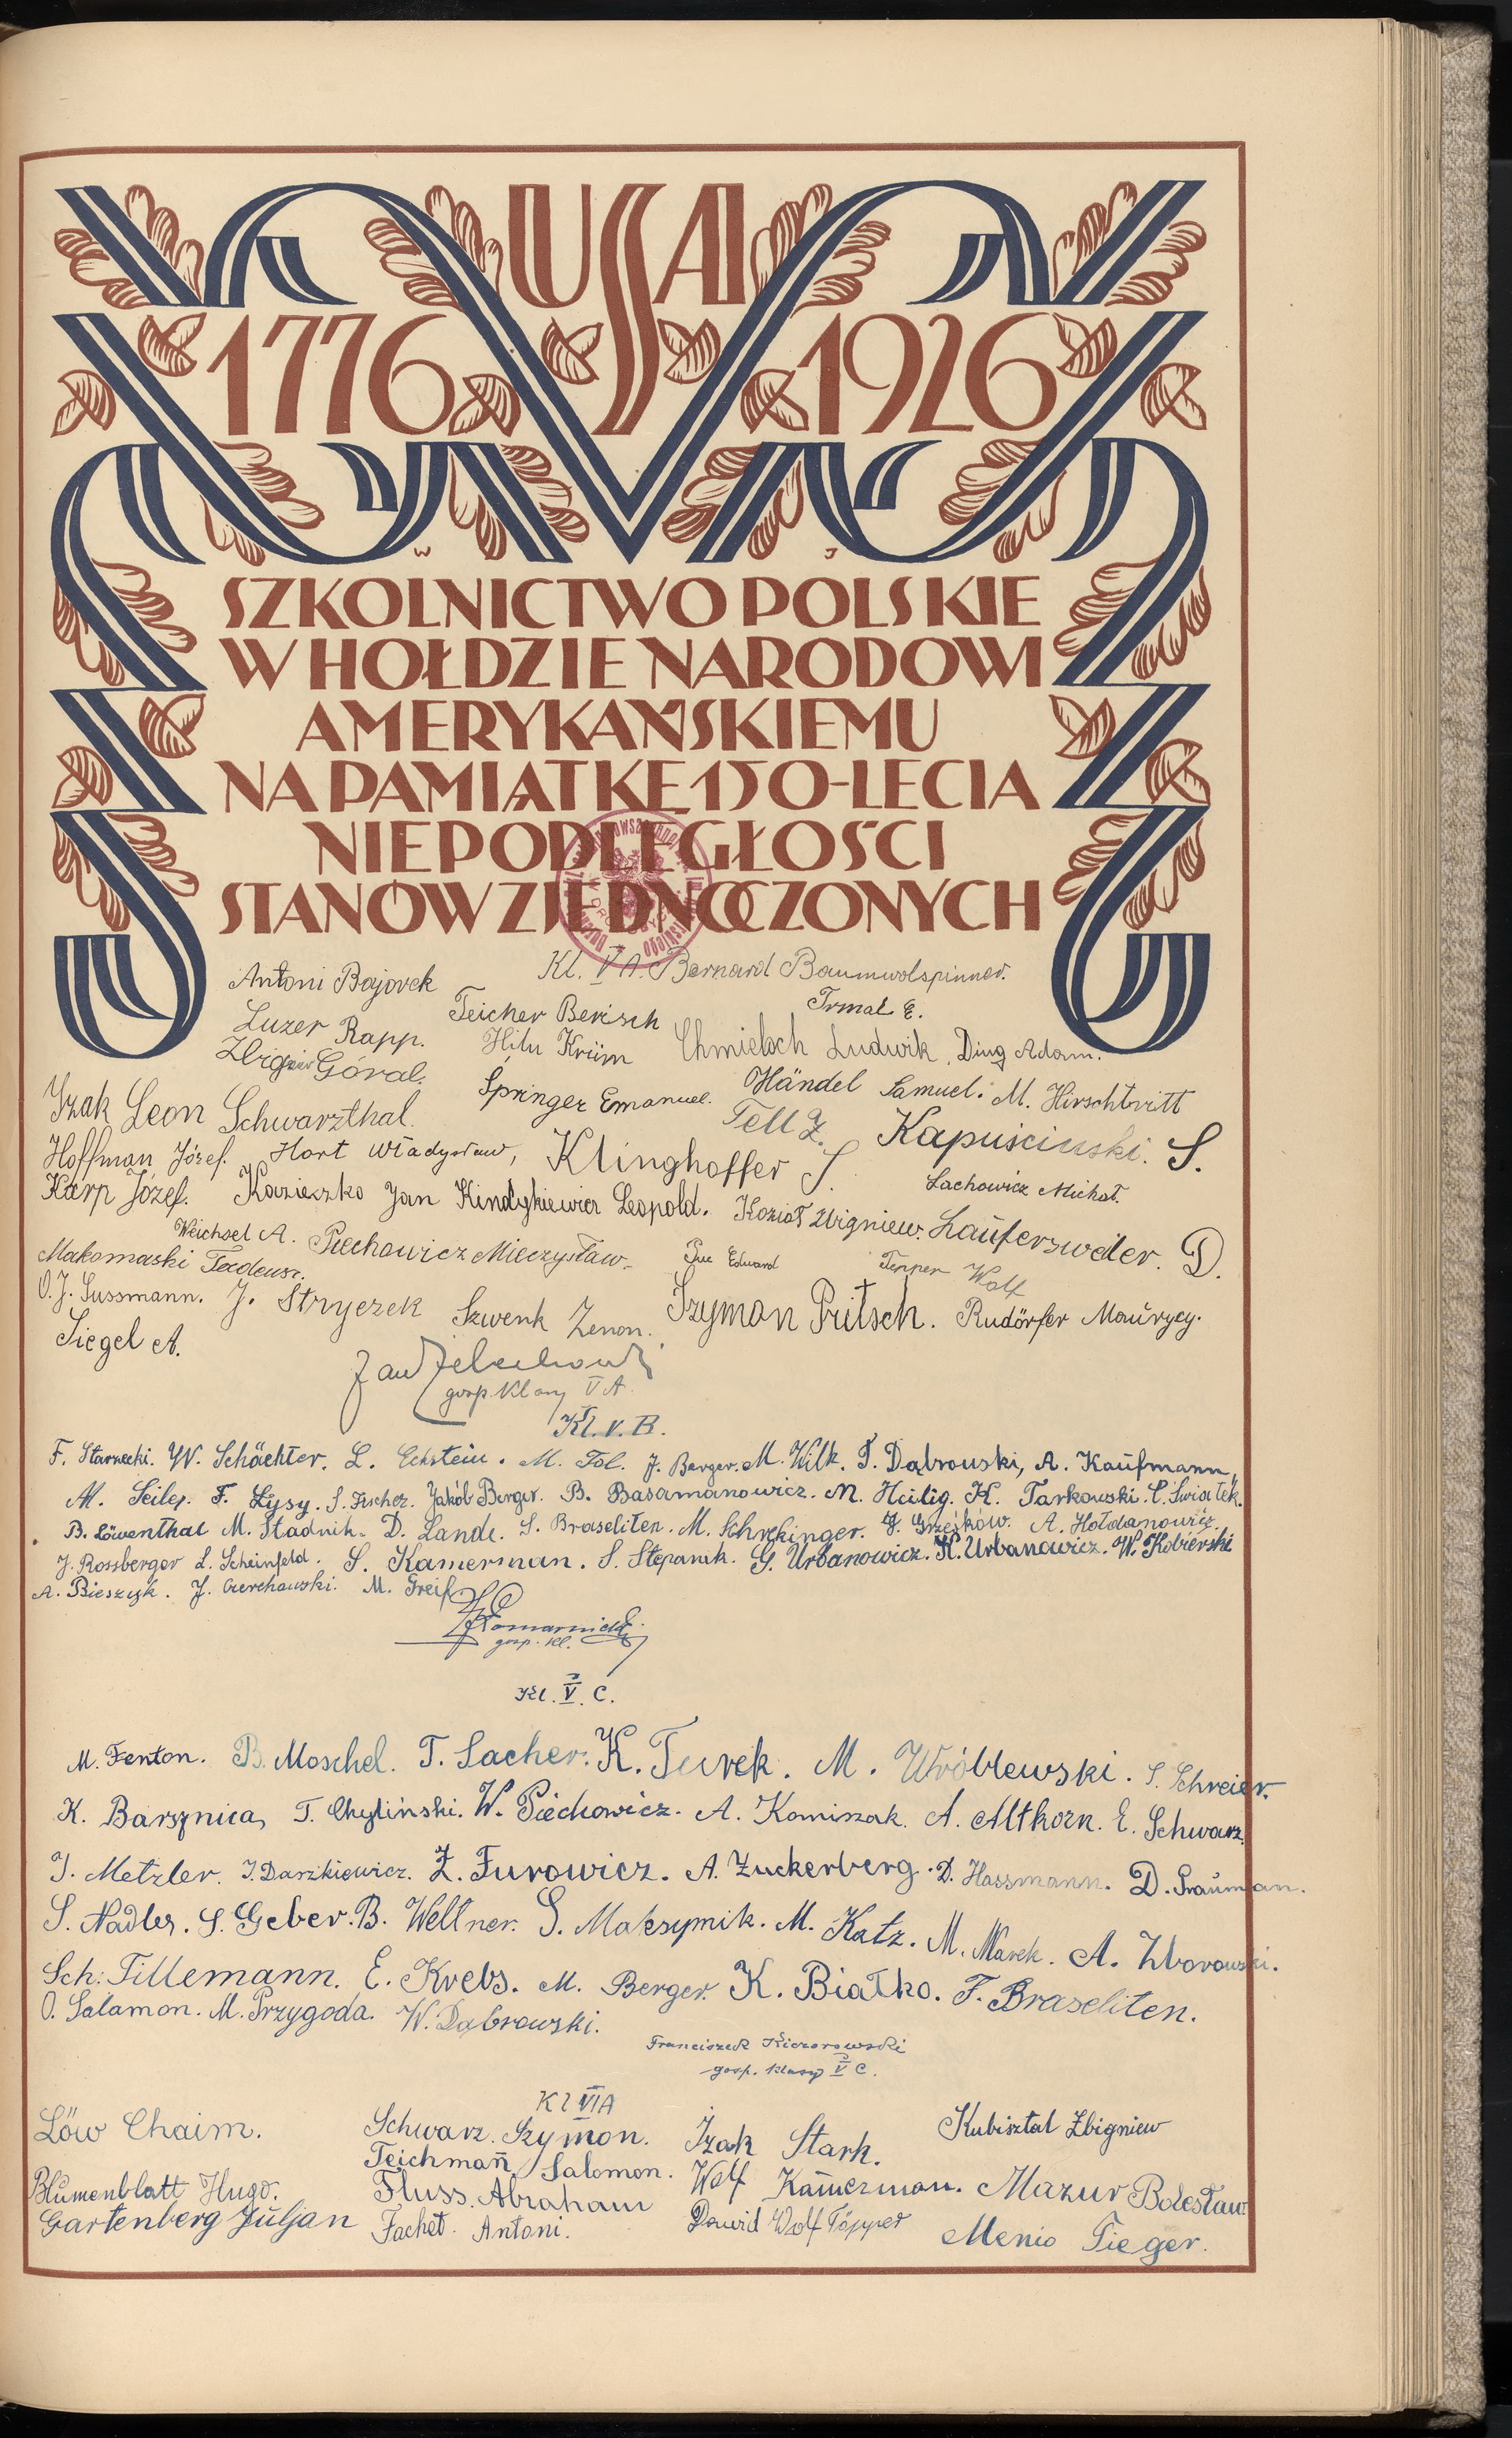 USA
1776 1926
W J
SZKOLNICTWO POLSKIE
W HOŁDZIE NARODOWI
AMERYKAŃSKIEMU
NA PAMIĄTKĘ 150-LECIA
NIEPODLEGŁOŚCI
STANÓW ZJEDNOCZONYCH
Kl. V A. Bernard Baumwolspinner.
Antoni Bajorek
Teicher Berisch Irmal E.
Luzer Rapp. Hilu Krüm Chmieloch Ludwik, Ding Adam.
Zbigniew Góral.
Springer Emanuel. Händel Samuel. M. Hirschtritt
Izak Leon Schwarzthal. Tell Z. Kapuściński. S.
Hoffman Józef. Hort Władysław, Klinghoffer J.
Karp Józef. Kozieczko Jan Kindykiewicz Leopold. Lachowicz Michał.
Kozioł Zbigniew. Lauferzweiler. D.
Weichsel A. Piechowicz Mieczysław.
Makomaski Tadeusz. Puc Edward Tepper Wolf
O. J. Sussmann. J. Stryczek Szwenk Zenon. Szymon Pritsch. Rudörfer Maurycy.
Siegel A.
Jan
gosp. Klasy V A.
Kl. V. B.
F. Starzecki. W. Schächter. L. Eckstein. M. Fol. J. Berger. M. Wilk. T. Dąbrowski, A. Kaufmann,
M. Seiler. F. Łysy. S. Fischer. Jakób Berger. B. Basamanowicz. M. Heilig. K. Tarkowski. C. Świątek.
B. Löwenthal M. Stadnik. D. Lande. S. Braseliten. M. Schrekinger. J. Grześków. A. Hołdanowicz.
J. Rossberger L. Scheinfeld. S. Kamerman. S. Stepanik. G. Urbanowicz. K. Urbanowicz. W. Kobierski
A. Bieszczk. J. Czerchowski. M. Greif
Komarnicki
gosp. kl.
Kl. V. C.
M. Fenton. B. Moschel. T. Sacher. K. Turek. M. Wróblewski. S. Schreier.
K. Barsznica, T. Chyliński. W. Piechowicz. A. Komiszak. A. Altkorn. E. Schwarz.
J. Metzler. J. Daszkiewicz. Z. Jurowicz. A. Zuckerberg. D. Hassmann. D. Grauman.
S. Nadler. S. Geber. B. Weltner. S. Maksymik. M. Katz. M. Marek. A. Zborowski.
Sch. Tillemann. E. Krebs. M. Berger. K. Białko. F. Braseliten.
O. Salamon. M. Przygoda. W. Dąbrowski.
Franciszek Kiczorowski
gosp. klasy V C.
Kl VI A
Löw Chaim. Schwarz. Szymon. Izak Stark. Kubisztal Zbigniew
Teichmann Salomon.
Blumenblatt Hugo. Fluss. Abraham Wolf Kamerman. Mazur Bolesław
Gartenberg Juljan Fachet. Antoni. Dawid Wolf Töpper Menio Tieger.